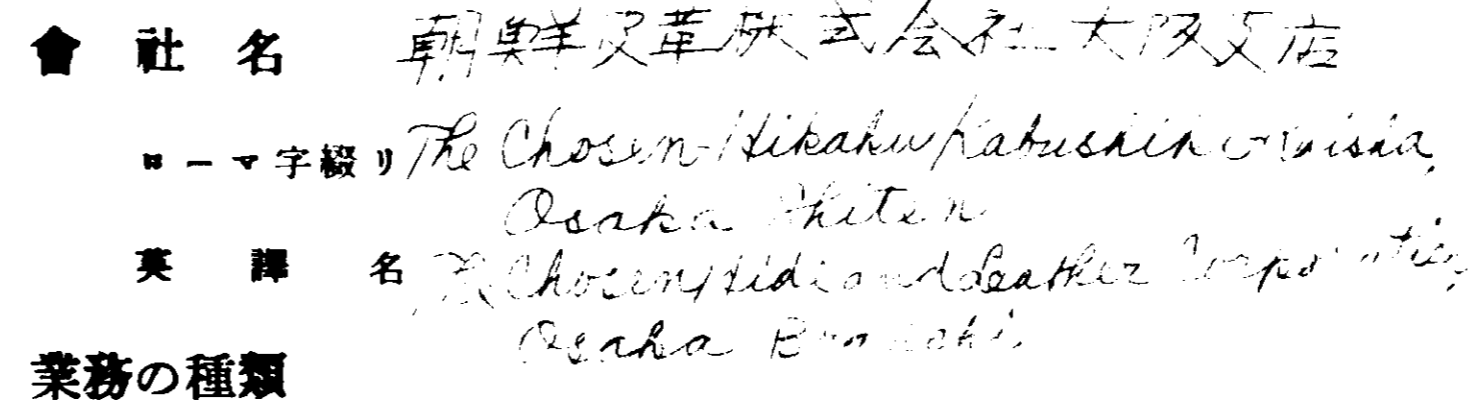 會社名 朝鮮皮革株式会社大阪支店
ローマ字綴リ The Chosen Hikaku Kabushiki Kaisha,
Osaka Shiten
英譯名 The Chosen Hide and Leather Corporation,
Osaka
業務の種類